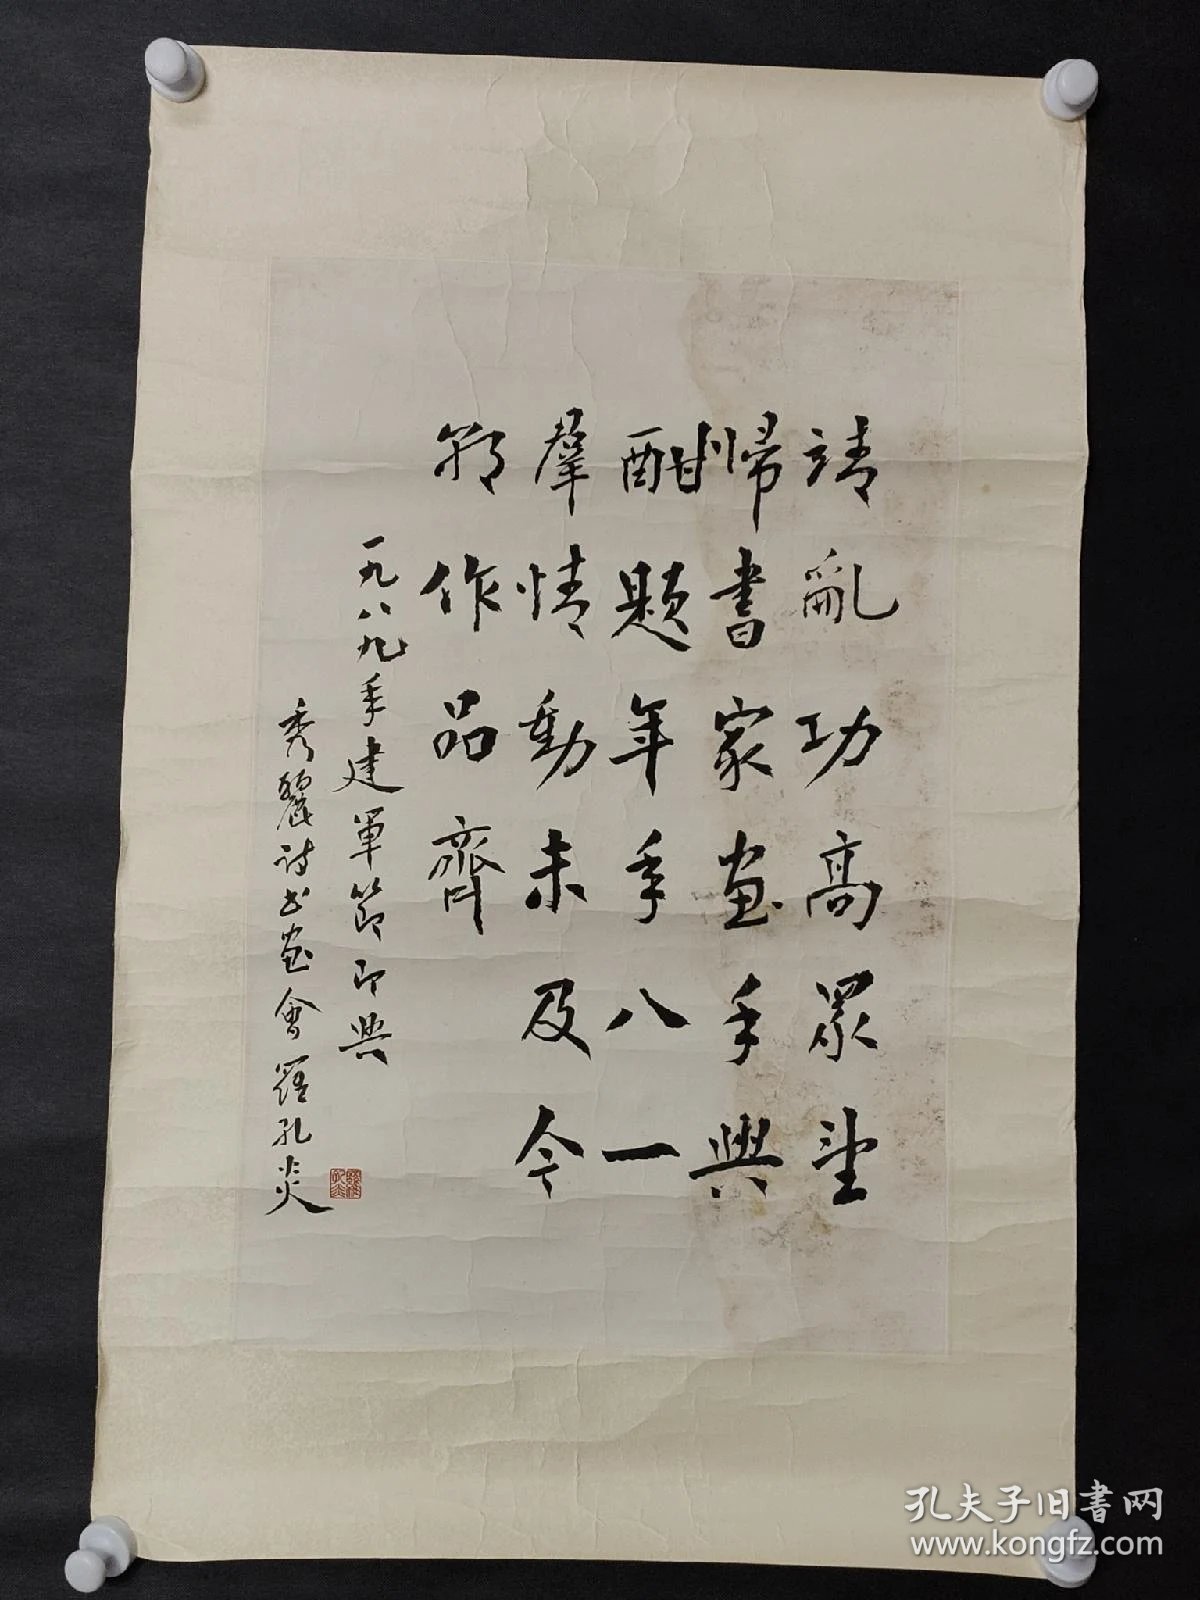 靖亂功高眾望
歸書家畫手興
酣題年年八一
羣情動未及今
朝作品齊
一九八九年建軍節即興
秀麗詩书畫會羅孔炎
孔夫子旧書网
www.kongfz.com